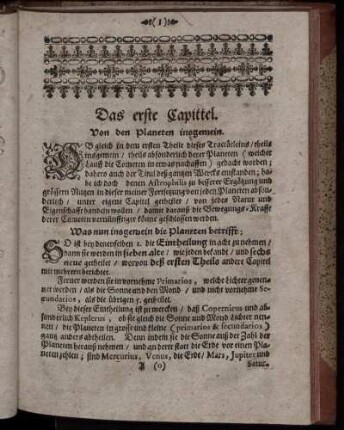 (1)
Das erste Capittel.
Von den Planeten insgemein.
OB gleich in dem ersten Theile dieses Tractätleins/ theils
insgemein / theils absonderlich derer Planeten ( welcher
Lauff die Cometen in etwas nachaffen ) gedacht worden;
dahero auch der Titul deß gantzen Wercks entstanden; ha-
be ich doch denen Astrophilis zu besserer Ergötzung und
grössern Nutzen in dieser meiner Fortsetzung von jeden Planeten abson-
derlich / unter eigene Capitel getheilet / von jedes Natur und
Eigenschafft handeln wollen / damit daraus die Bewegungs-Krafft
derer Cometen vernünfftiger könne geschlossen werden.
Was nun insgemein die Planeten betrifft;
SO ist bey denenselben 1. die Eintheilung in acht zu nehmen /
dann sie werden in sieben alte / wie jeden bekandt / und sechs
neue getheilet / worvon deß ersten Theils ander Capitel
mit mehrern berichtet.
Ferner werden sie in vornehme Primarios, welche Lichter genen-
net werden / als die Sonne und den Mond / und nicht vornehme Se-
cundarios, als die übrigen 5. getheilet.
Bey dieser Eintheilung ist zu mercken / daß Copernicus und ab-
sonderlich Keplerus, ob sie gleich die Sonne und Mond Lichter nen-
nen / die Planeten in grosse und kleine ( primarios & secundarios )
gantz anders abtheilen. Denn indem sie die Sonne aus der Zahl der
Planeten heraus nehmen / und an derer statt die Erde vor einen Pla-
neten zehlen; sind Mercurius, Venus, die Erde/ Mars, Jupiter und
A (o) Satur-